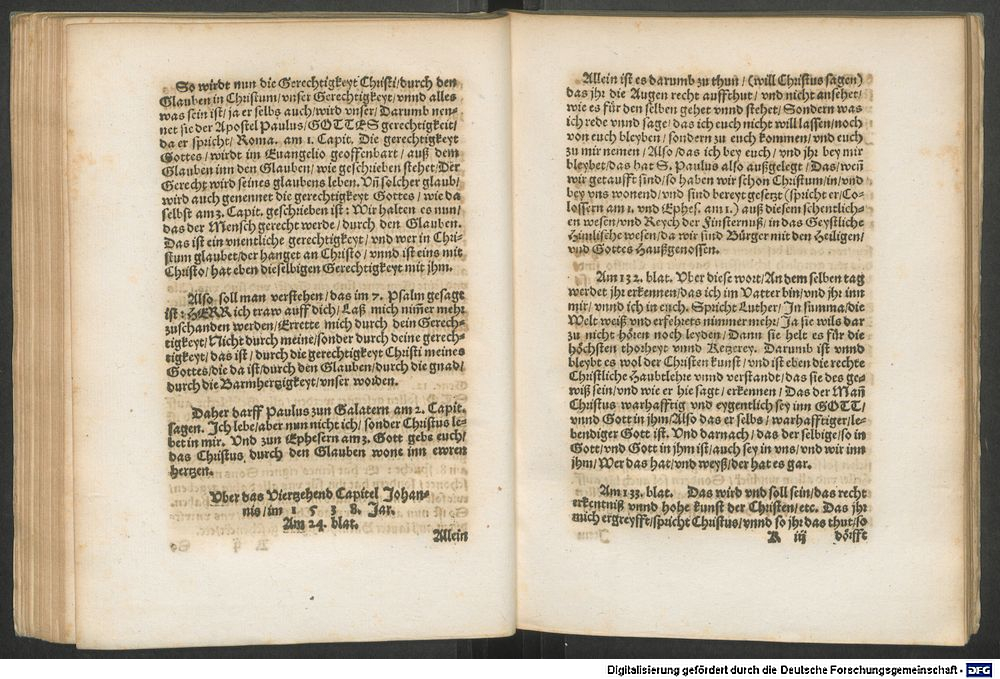 So wirdt nun die Gerechtigkeyt Christi/durch den
Glauben in Christum/vnser Gerechtigkeyt/vnnd alles
was sein ist/ja er selbs auch/wird vnser/Darumb nen-
net sie der Apostel Paulus/GOTTES gerechtigkeit/
da er spricht/Roma. am 1. Capit. Die gerechtigkeyt
Gottes/wirdt im Euangelio geoffenbart/auß dem
Glauben inn den Glauben/wie geschrieben stehet/Der
Gerecht wird seines glaubens leben. Vñ solcher glaub/
wird auch genennet die gerechtigkeyt Gottes/wie da
selbst am 3. Capit. geschrieben ist: Wir halten es nun/
das der Mensch gerecht werde/durch den Glauben.
Das ist ein vnentliche gerechtigkeyt/vnd wer in Chri-
stum glaubet/der hanget an Christo/vnnd ist eins mit
Christo/hat eben dieselbigen Gerechtigkeyt mit jhm.
Also soll man verstehen/das im 7. Psalm gesagt
ist: HERR ich traw auff dich/Laß mich nim̃er mehr
zuschanden werden/Errette mich durch dein Gerech-
tigkeyt/Nicht durch meine/sonder durch deine gerech-
tigkeyt/das ist/durch die gerechtigkeyt Christi meines
Gottes/die da ist/durch den Glauben/durch die gnad/
durch die Barmhertzigkeyt/vnser worden.
Daher darff Paulus zun Galatern am 2. Capit.
sagen. Ich lebe/aber nun nicht ich/sonder Christus le-
bet in mir. Vnd zun Ephesern am 3. Gott gebe euch/
das Christus, durch den Glauben wone inn ewren
hertzen.
Vber das Viertzehend Capitel Johan-
nis/im 1 5 3 8. Jar.
Am 24. blat.
Allein
Allein ist es darumb zu thun/(will Christus sagen)
das jhr die Augen recht auffthut/vnd nicht ansehet/
wie es für den selben gehet vnnd stehet/Sondern was
ich rede vnnd sage/das ich euch nicht will lassen/noch
von euch bleyben/sondern zu euch kommen/vnd euch
zu mir nemen/Also/das ich bey euch/vnd jhr bey mir
bleybet/das hat S. Paulus also außgelegt/Das/weñ
wir getaufft sind/so haben wir schon Christum/in/vnd
bey vns wonend/vnd sind bereyt gesetzt (spricht er/Co-
lossern am 1. vnd Ephes. am 1.) auß diesem schentlich-
en wesen/vnd Reych der Finsternuß/in das Geystliche
Himlische wesen/da wir sind Bürger mit den Heiligen/
vnd Gottes Haußgenossen.
Am 132. blat. Vber diese wort/An dem selben tag
werdet jhr erkennen/das ich im Vatter bin/vnd jhr inn
mir/vnnd ich in euch. Spricht Luther/In summa/die
Welt weiß vnd erfehrets nimmer mehr/Ja sie wils dar
zu nicht hören noch leyden/Dann sie helt es für die
höchsten thorheyt vnnd Ketzerey. Darumb ist vnnd
bleybt es wol der Christen kunst/vnd ist eben die rechte
Christliche Haubtlehre vnnd verstandt/das sie des ge-
wiß sein/vnd wie er hie sagt/erkennen/Das der Mañ
Christus warhafftig vnd eygentlich sey inn GOTT/
vnnd Gott in jhm/Also das er selbs/warhafftiger/le-
bendiger Gott ist. Vnd darnach/das der selbige/so in
Gott/vnd Gott in jhm ist/auch sey in vns/vnd wir inn
jhm/Wer das hat/vnd weyß/der hat es gar.
Am 133. blat. Das wird vnd soll sein/das recht
erkentniß vnnd hohe kunst der Christen/etc. Das jhr
mich ergreyfft/spricht Christus/vnnd so jhr das thut/so
K iij dörfft
Digitalisierung gefördert durch die Deutsche Forschungsgemeinschaft - DFG